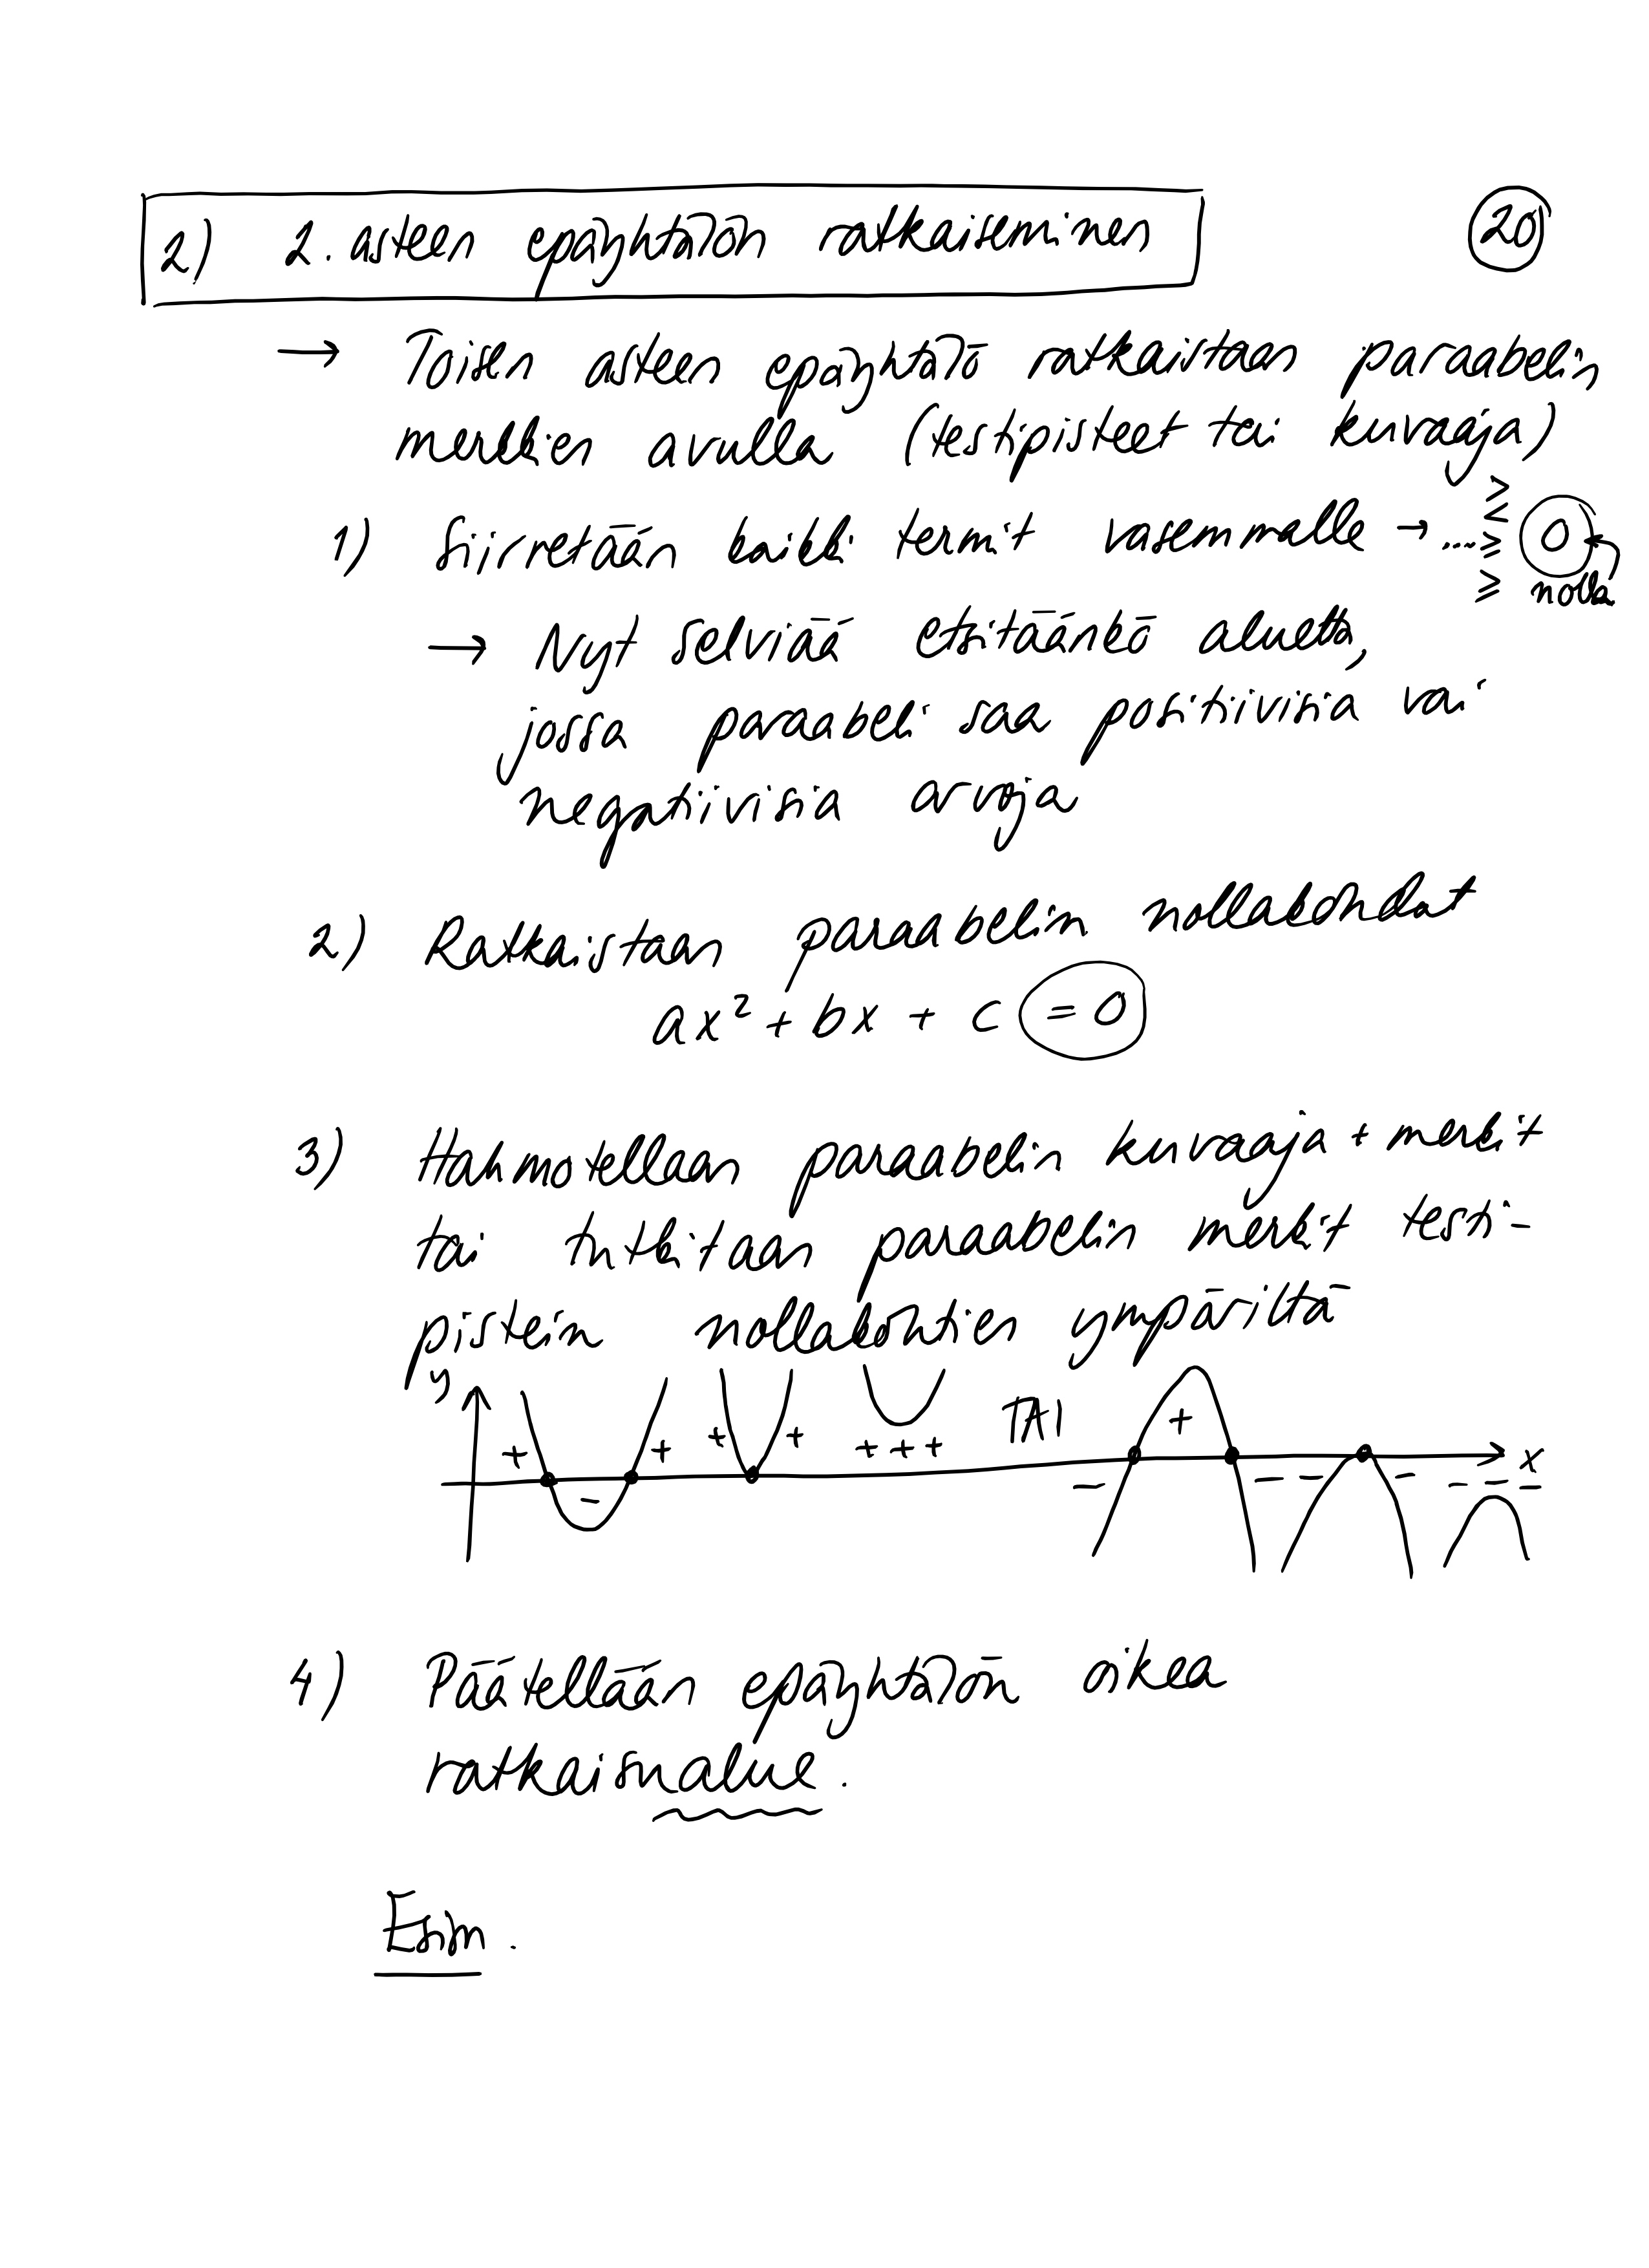 2) 2. asteen epäyhtälön ratkaiseminen
20
→ Toisen asteen epäyhtälö ratkaistaan paraabelin
merkkien avulla (testipisteet tai kuvaaja)
>
<
1) Siirretään kaikki termit vasemmalle → ....≥ 0
≥ nolla
→ Nyt selviää etsitäänkö aluetta,
jossa paraabeli saa positiivisia vai
negatiivisia arvoja
2) Ratkaistaan paraabelin nollakohdat
ax² + bx + c = 0
3) Hahmotellaan paraabelin kuvaaja + merkit
tai tutkitaan paraabelin merkit testi-
pistein nollakohtien ympäriltä
y
+ - + + + + + + TAI - + - - - - - - x
4) Päätellään epäyhtälön oikea
ratkaisualue.
Esim.